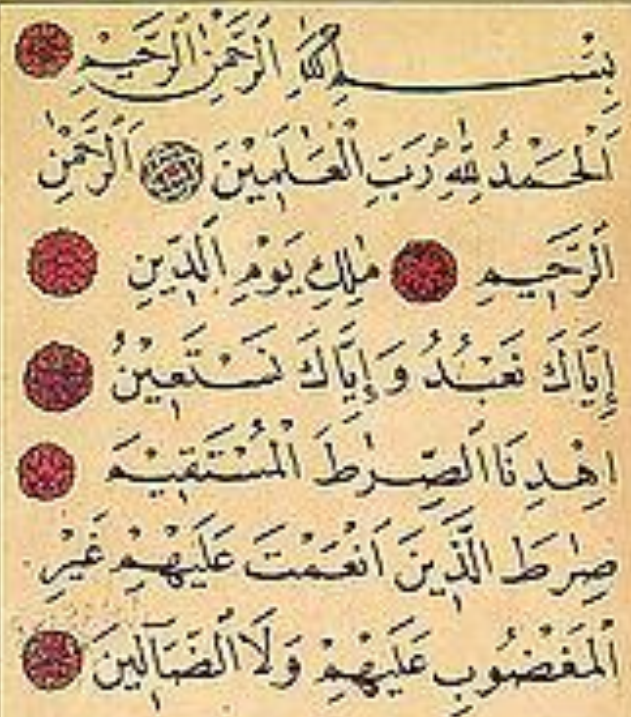 بِسْمِ اللّٰهِ الرَّحْمٰنِ الرَّحِيمِ
اَلْحَمْدُ لِلّٰهِ رَبِّ الْعَالَمِينَ اَلرَّحْمٰنِ
الرَّحِيمِ مٰلِكِ يَوْمِ الدِّينِ
اِيَّاكَ نَعْبُدُ وَاِيَّاكَ نَسْتَعِينُ
اِهْدِنَا الصِّرَاطَ الْمُسْتَقِيمَ
صِرَاطَ الَّذِينَ اَنْعَمْتَ عَلَيْهِمْ غَيْرِ
الْمَغْضُوبِ عَلَيْهِمْ وَلَا الضَّٓالِّينَ